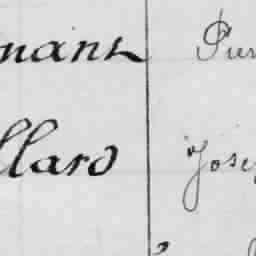 mant Pier
llard Jose